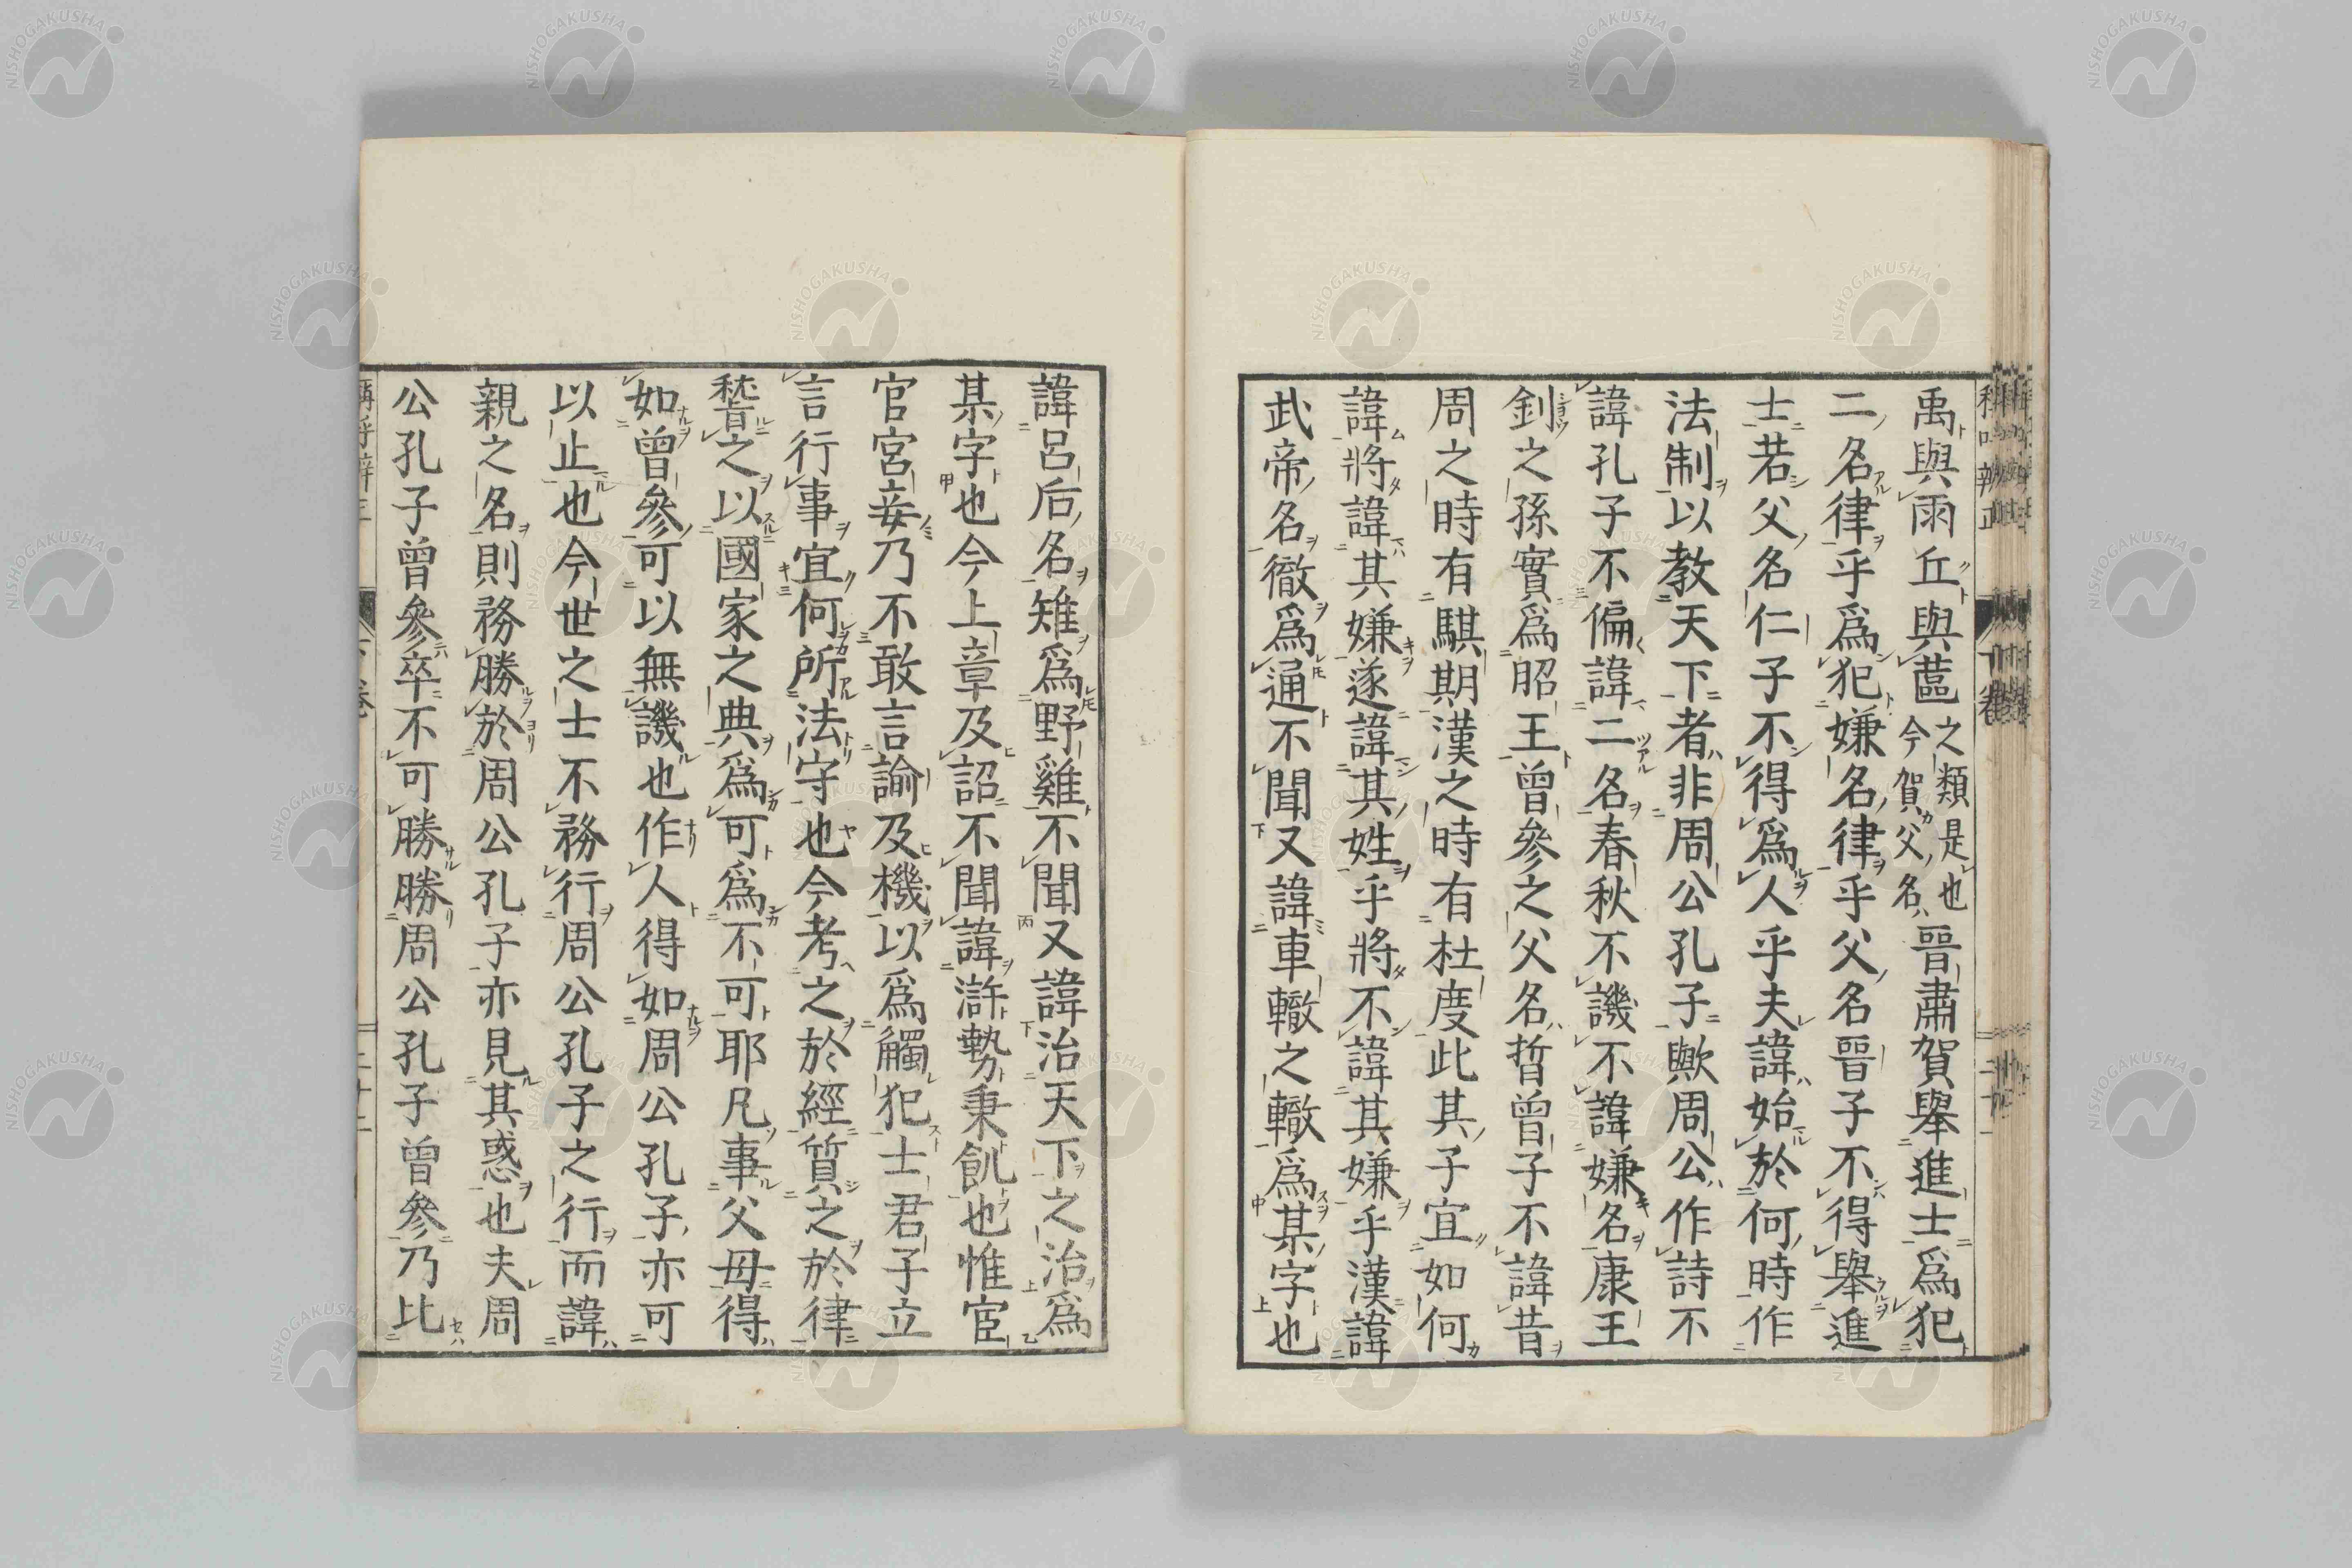 禹與雨丘與蓲之類是也今賀父名晉肅賀舉進士爲犯
二名律乎爲犯嫌名律乎父名晉子不得舉進
士若父名仁子不得爲人乎夫諱始於何時作
法制以教天下者非周公孔子歟周公作詩不
諱孔子不偏諱二名春秋不譏不諱嫌名康王
釗之孫實爲昭王曾參之父名晳曾子不諱昔
周之時有騏期漢之時有杜度此其子宜如何
諱將諱其嫌遂諱其姓乎將不諱其嫌乎漢諱
武帝名徹爲通不聞又諱車轍之轍爲某字也
諱呂后名雉爲野雞不聞又諱治天下之治爲
某字也今上章及詔不聞諱滸勢秉飢也惟宦
官宮妾乃不敢言諭及機以爲觸犯士君子立
言行事宜何所法守也今考之於經質之於律
稽之以國家之典爲可爲不可耶凡事父母得
如曾參可以無譏也作人得如周公孔子亦可
以止也今世之士不務行周公孔子之行而諱
親之名則務勝於周公孔子亦見其惑也夫周
公孔子曾參卒不可勝勝周公孔子曾參乃比
NISHOGAKUSHA